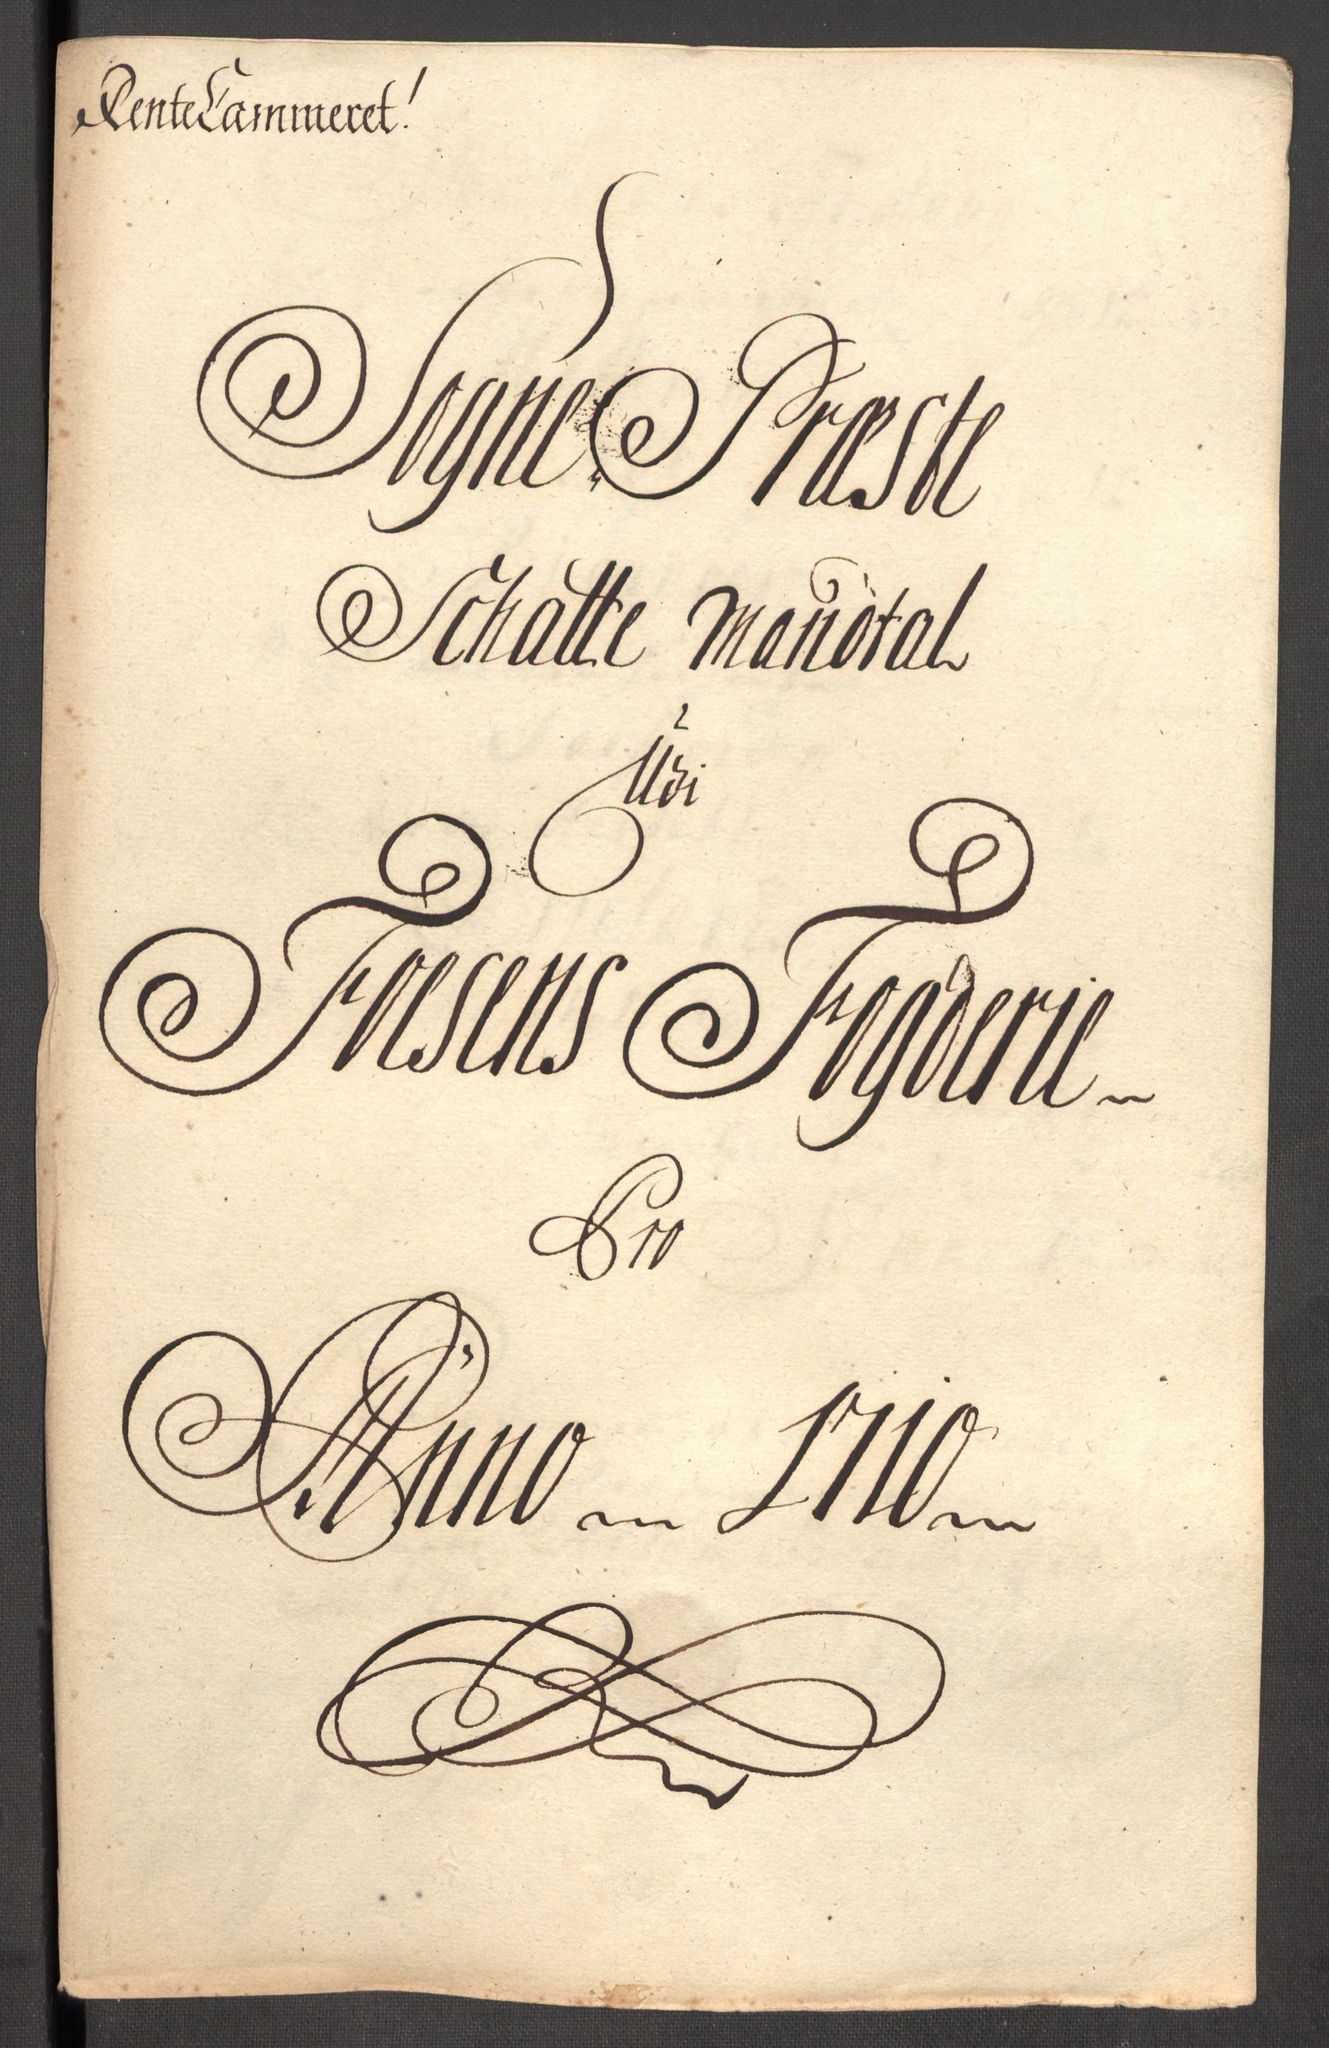 RenteCammeret!
Sogne Præste
Schatte Mandtal
Udi
Foesens Fogderie
Pro
Anno 1710